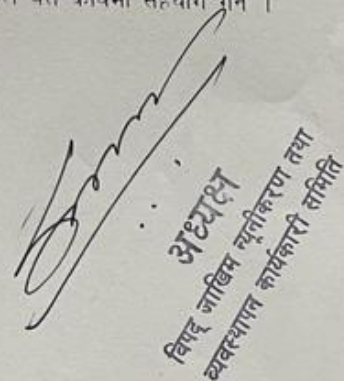 कार्यमा सहयोग गर्न ।
अध्यक्ष
विपद् जोखिम न्यूनीकरण तथा
व्यवस्थापन कार्यकारी समिति